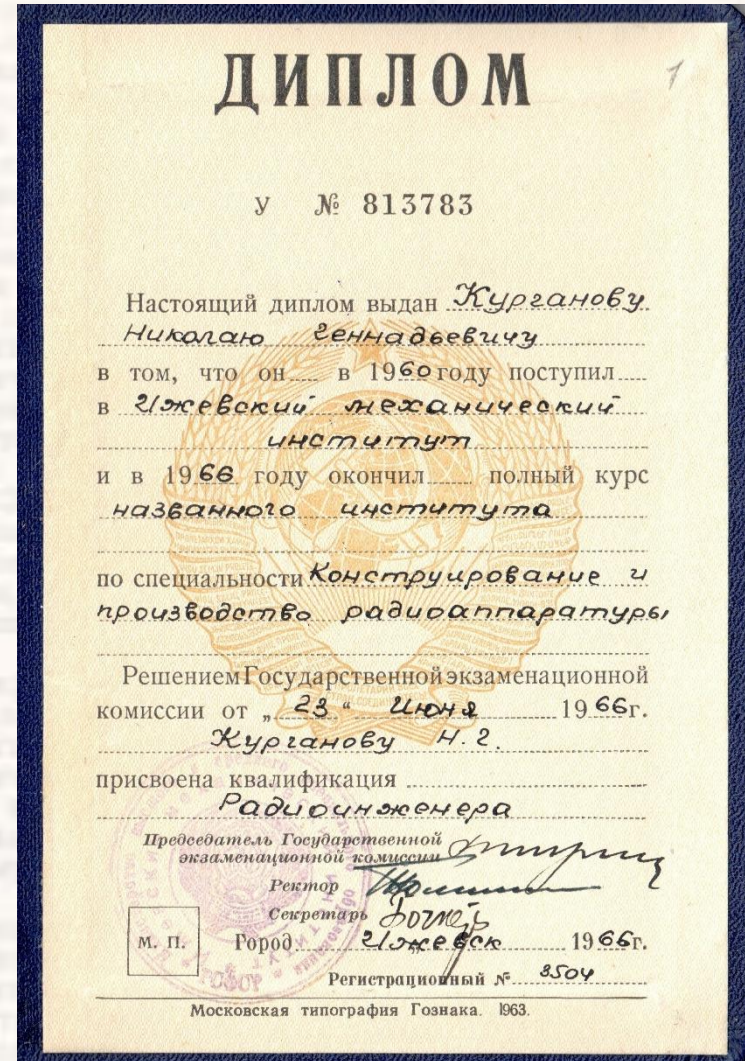 ДИПЛОМ
1
У № 813783
Настоящий диплом выдан Курганову
Николаю Геннадьевичу
в том, что он в 1960 году поступил
в Ижевский механический
институт
и в 1966 году окончил полный курс
названного института
по специальности Конструирование и
производство радиоаппаратуры
Решением Государственной экзаменационной
комиссии от „23“ Июня 1966г.
Курганову Н. Г.
присвоена квалификация
Радиоинженера
Председатель Государственной
экзаменационной комиссии
Ректор
Секретарь
М. П.
Город Ижевск 1966г.
Регистрационный № 3504
Московская типография Гознака. 1963.